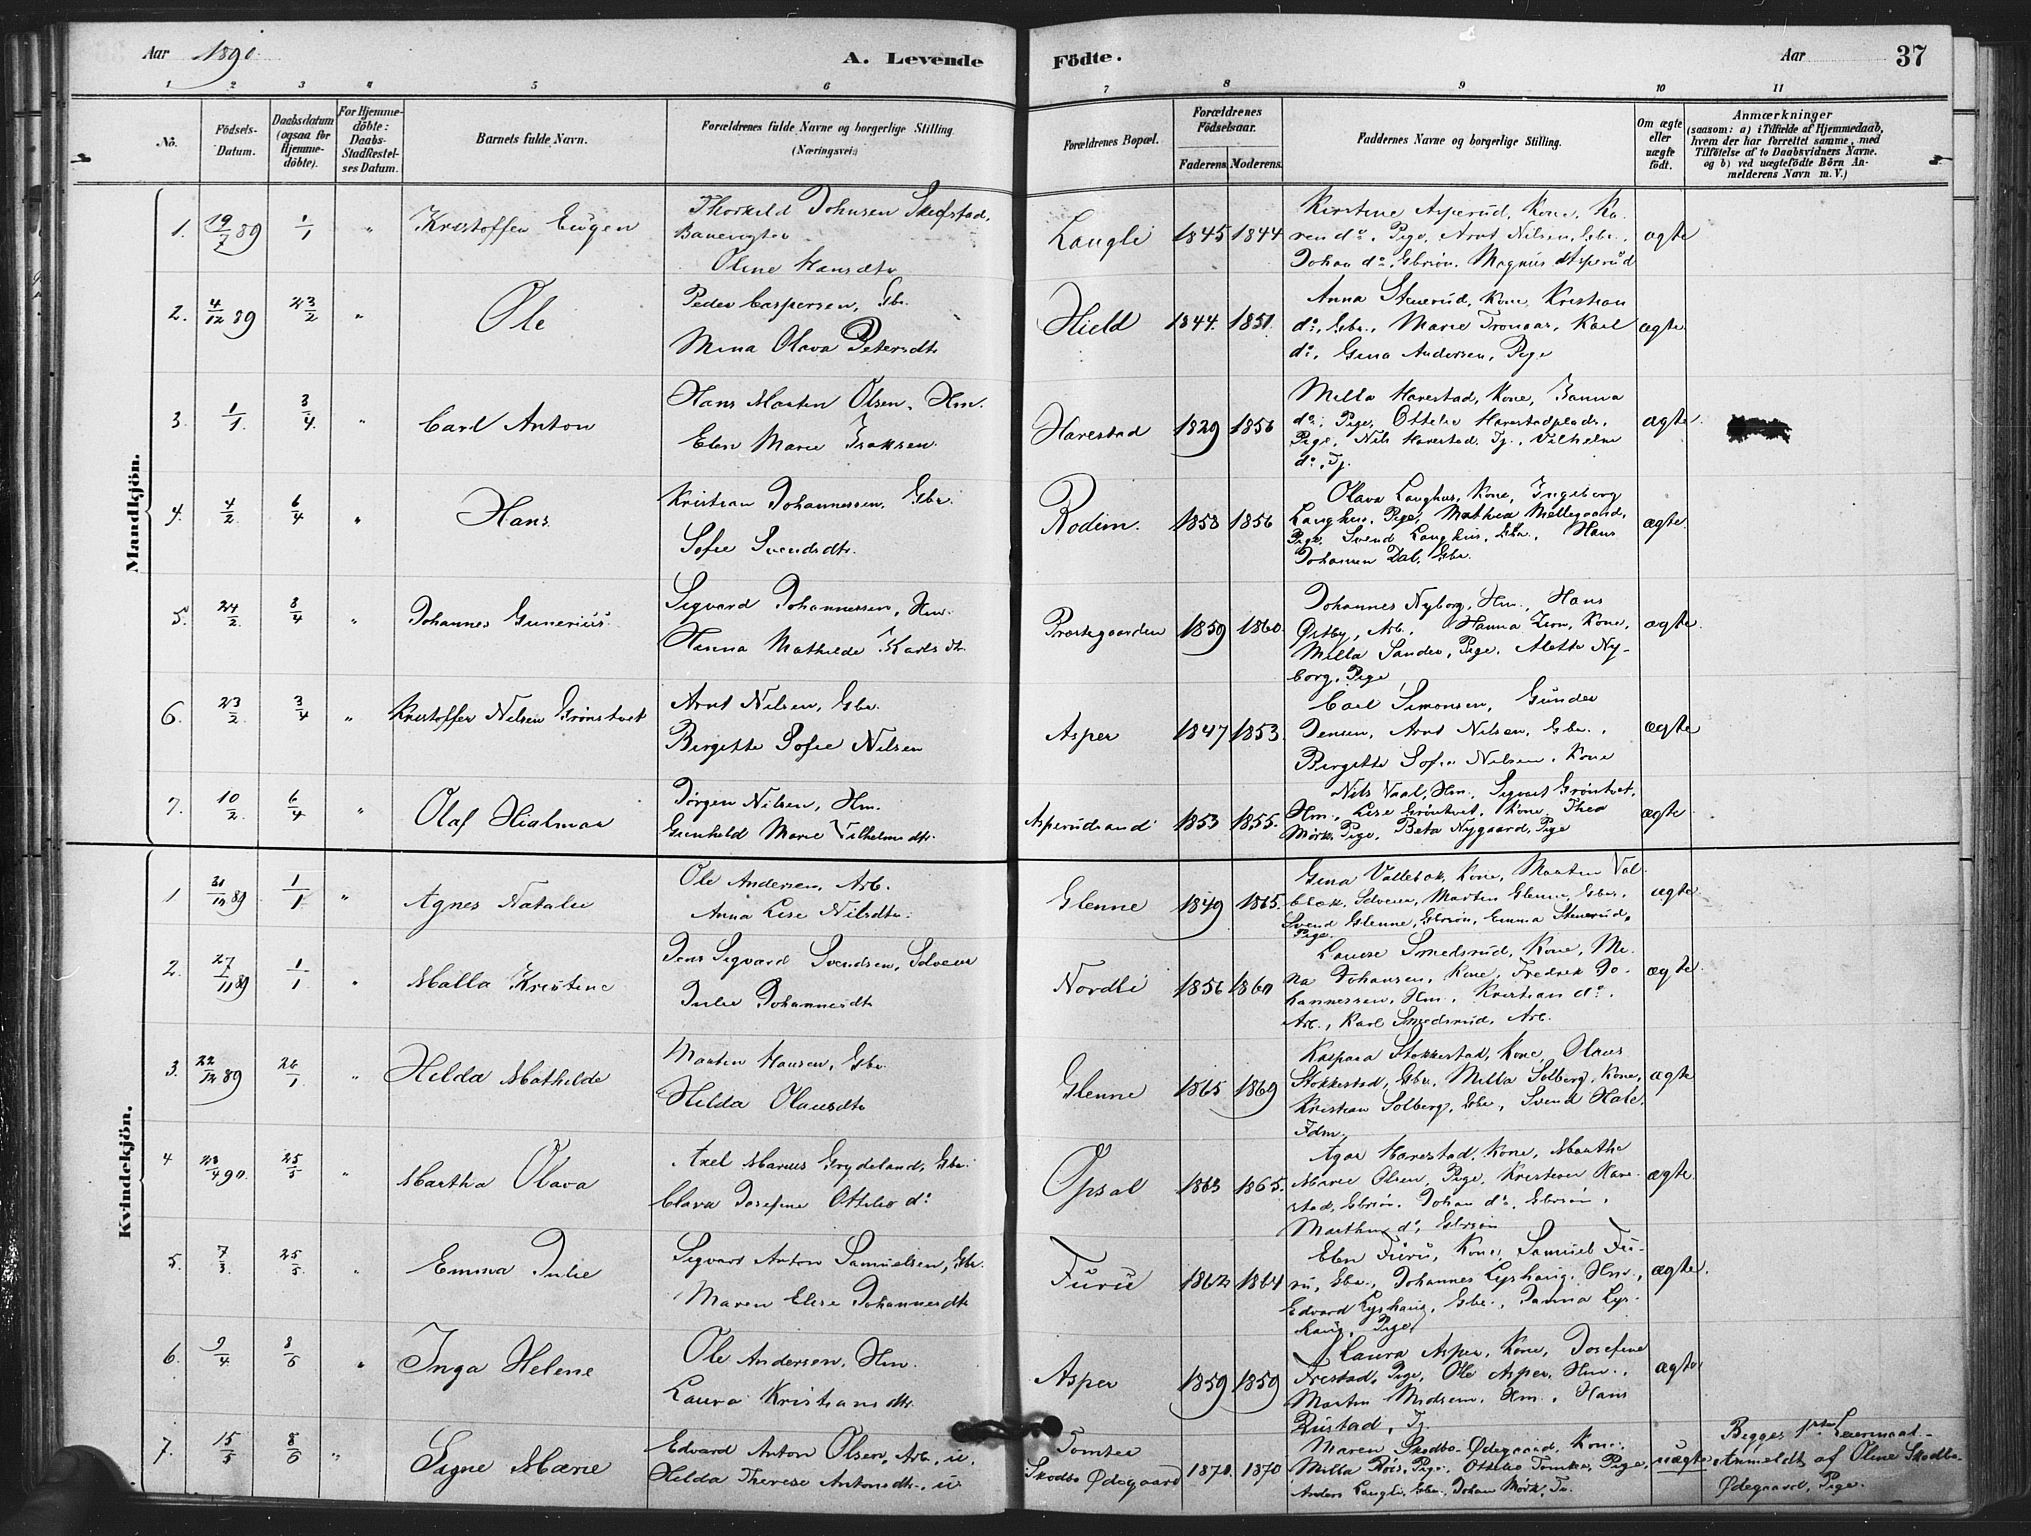 Aar 1890.
A. Levende Födte.
Aar
37
1 2 3 4 5 6 7 8 9 10 11
No.
Födsels-Datum.
Daabsdatum (ogsaa for Hjemme-döbte).
For Hjemme-döbte: Daabs-Stadfestel-ses Datum.
Barnets fulde Navn.
Forældrenes fulde Navne og borgerlige Stilling. (Næringsvei.)
Forældrenes Bopæl.
Forældrenes Födselsaar.
Faderens. Moderens.
Faddernes Navne og borgerlige Stilling.
Om ægte eller uægte födt.
Anmærkninger
(saasom: a) i Tilfælde af Hjemmedaab, hvem der har forrettet samme, med Tilföielse af to Daabsvidners Navne. og b) ved uægtefödte Börn An-melderens Navn m. V.)
Mandkjön.
1. 19/7 89 1/1 " Kristoffer Eugen
Thorkild Johnsen Skofstad,
Banevogter
Oline Hansdtr
Langli 1845 1844
Kirstine Asperud, Kone, Ka-
ren do. Pige, Arnt Nilsen, Gbr.,
Johan do. Gbrsön. Magnus Asperud
ægte
2. 4/12 89 23/2 " Ole
Peder Caspersen, Gbr.
Mina Olava Petersdtr
Hield 1844. 1851.
Anna Stenerud, Kone, Kristian
do., Gbr., Marie Tronaas, Karl
do., Gina Andersen, Pige
ægte
3. 1/1. 3/4. " Carl Anton
Hans Martin Olsen, Hm.
Elen Marie Isaksen.
Harestad 1829 1856
Milla Harestad, Kone, Janna
do., Pige, Ottilie Harestadplads,
Pige, Nils Harestad, Tj., Vilhelm
do., Tj.
ægte.
4. 4/2 6/4 " Hans.
Kristian Johannessen, Gbr.
Sofie Svendsdtr.
Rodim. 1858 1856
Olava Langhus, Kone, Ingeborg
Langhus, Pige, Mathea Möllegaard,
Pige, Svend Langhus, Gbr., Hans
Johansen Dal, Gbr.
ægte.
5. 24/2 8/4 " Johannes Gunerius.
Sigvard Johannessen, Hm.
Hanna Mathilde Karlsdtr.
Præstegaarden 1859 1860.
Johannes Nyborg, Hm., Hans
Østby, Arb., Hanna Lien, Kone,
Milla Sander, Pige, Alette Ny-
borg, Pige
ægte.
6. 23/2 3/4 " Kristoffer Nilsen Grönstvet
Arnt Nilsen, Gbr.
Birgitte Sofie Nilsen
Asper 1847 1853.
Carl Simonsen, Gunder
Jensen, Arnt Nilsen, Gbr.,
Birgitte Sofie Nilsen, Kone
ægte
7. 10/2 6/4 " Olaf Hialmar
Jörgen Nilsen, Hm.
Gunhild Marie Vilhelmsdtr.
Asperudsand 1853 1855.
Nils Vaal, Hm., Sigvart Grönstvet,
Hm., Lise Grönstvet, Kone, Thea
Mörk, Pige, Beta Nygaard, Pige
ægte
Kvindekjön.
1 31/12 89 1/1 " Agnes Natalie
Ole Andersen, Arb.
Anna Lise Nilsdtr.
Glenne 1849 1865.
Gina Vallebæk, Kone, Martin Val-
bæk, Selveier, Martin Glenne, Gbr.,
Svend Glenne, Gbrsön, Emma Stenerud,
Pige.
ægte
2. 27/11 89 1/1 " Malla Kristine
Jens Sigvard Svendsen, Selveier
Julie Johannesdtr
Nordli 1856 1860
Lauise Smedsrud, Kone, Mi-
na Johansen, Kone, Fredrik Jo-
hannessen, Hm., Kristian do.
Arb., Karl Smedsrud, Arb.
ægte
3. 22/12 89 26/1 " Hilda Mathilde
Martin Hansen, Gbr.
Hilda Olausdtr
Glenne 1865 1869
Kaspara Stokkestad, Kone, Olaus
Stokkestad, Gbr., Milla Solberg, Kone,
Kristian Solberg, Gbr., Svend Hole,
Fdm.
ægte
4 23/4 90. 25/5 " Martha Olava
Axel Marius Grydeland, Gbr.
Clara Josefine Ottilie do
Opsal 1863 1865.
Agar Harestad, Kone, Martha
Marie Olsen, Pige, Kristian Hare-
stad, Gbrsön, Johan do., Gbrsön,
Marthin do, Gbrsön
ægte.
5. 7/3 25/5 " Emma Julie
Sigvart Anton Samuelsen, Gbr.
Maren Elise Johannesdtr
Furu 1862 1864
Elen Furu, Kone, Samuel Fu-
ru, Gbr., Johannes Lyshaug, Hm.,
Edvard Lyshaug, Gbr., Janna Lys-
haug, Pige
ægte.
6. 9/4 8/6 " Inga Helene
Ole Andersen, Hm.
Laura Kristiansdtr
Asper 1859 1859
Laura Asper, Kone, Josefine
Frestad, Pige, Ole Asper, Hm.,
Martin Madsen, Hm., Hans
Rustad, Tj.
ægte
7. 15/5 8/6 " Signe Marie
Edvard Anton Olsen, Arb., u.
Hilda Therese Antonsdtr., u.
Tomter
Skodbo Ødegaard 1870. 1870
Maren Skodbo-Ødegaard, Kone,
Milla Röis, Pige, Ottilie Tomter, Pige,
Anders Langli, Gbr., Johan Mörk, Tj.
uægte
Begges 1ste Leiermaal.
Anmeldt af Oline Skodbo-
Ødegaard, Pige.